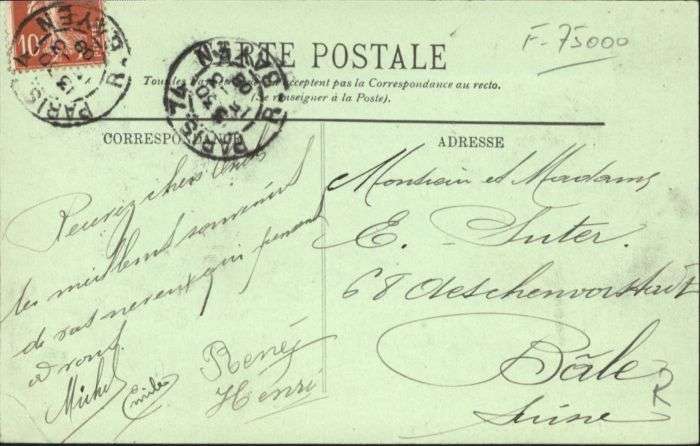 10
PARIS
R. BAYEN
PARIS 14
R. BAYEN
F-75000
CARTE POSTALE
Tous les pays acceptent pas la Correspondance au recto.
(Se renseigner à la Poste).
CORRESPONDANCE
ADRESSE
Recevez chers
les meilleurs souvenirs
de vos neveux qui pensent
à vous.
Michel
Emile
René
Henri
Monsieur et Madame
E. Suter.
68 Aeschenvorstadt
Bâle
R
Suisse